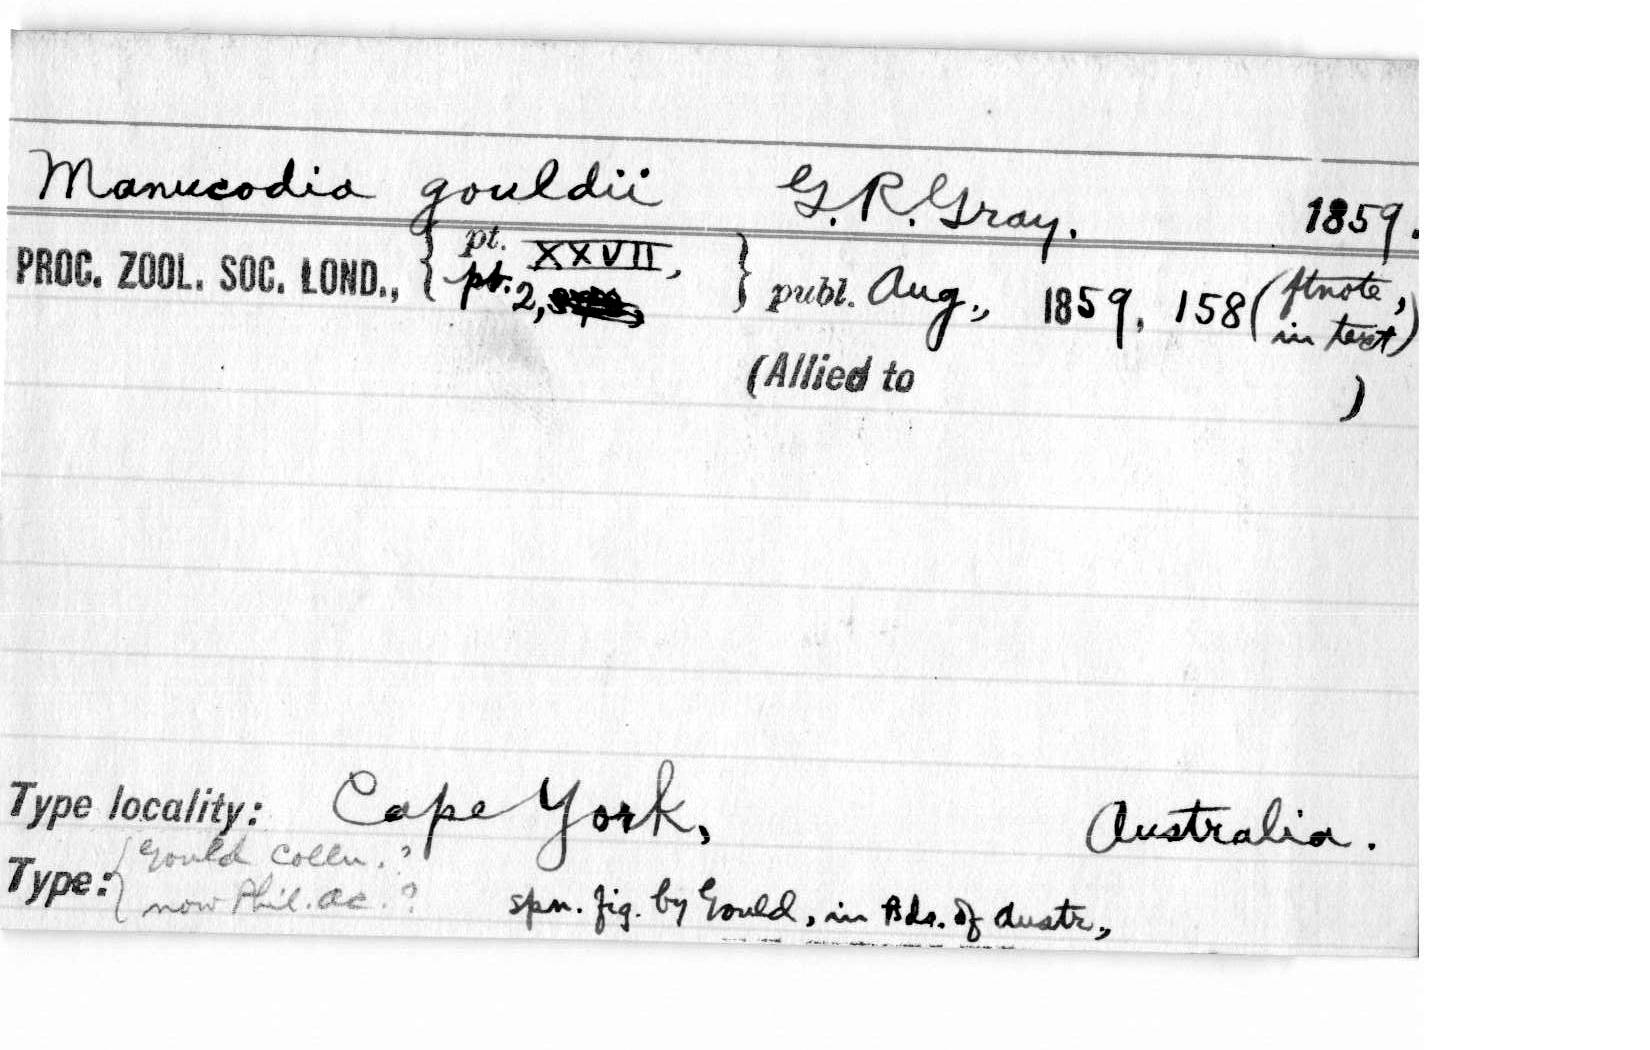 Manucodia gouldii G. R. Gray. 1859.
PROC. ZOOL. SOC. LOND., { pt. XXVII, } publ. Aug., 1859, 158 (ftnote,
pt. 2, in text)
(Allied to )
Type locality: Cape York, Australia.
Type: { Gould Colln. ?
now Phil. Ac. ? spn. fig. by Gould, in Bds. of Austr.,